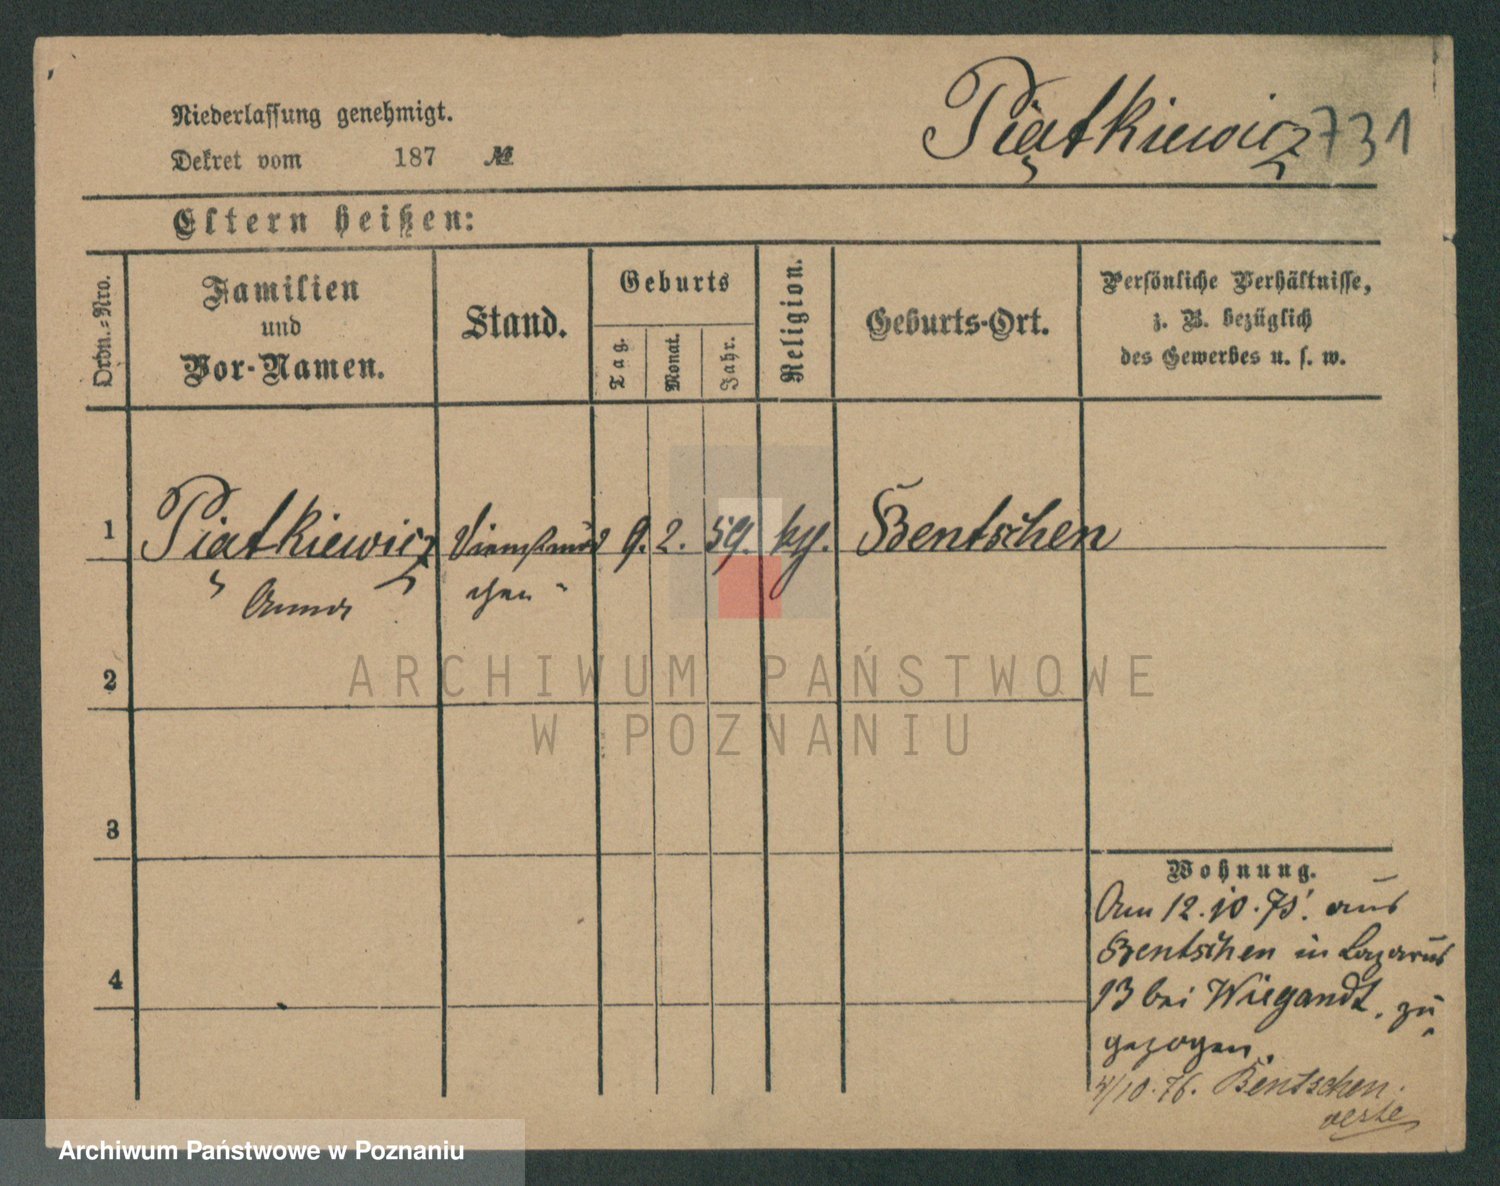 Piątkiewicz 731
Niederlassung genehmigt.
Dekret vom 187 №
Eltern heißen:
Ordn.-Nro.
Familien
und
Vor-Namen.
Stand.
Geburts
Tag.
Monat.
Jahr.
Religion.
Geburts-Ort.
Persönliche Verhältnisse,
z. B. bezüglich
des Gewerbes u. s. w.
1 Piątkiewicz Dienstmäd 9. 2. 59. kg. Bentschen
Anna chen
2
3
4
Wohnung.
Am 12.10.75. aus
Bentschen in Lazarus
13 bei Wiegandt, zu
gezogen.
4/10.76. Bentschen.
ARCHIWUM PAŃSTWOWE
W POZNANIU
Archiwum Państwowe w Poznaniu